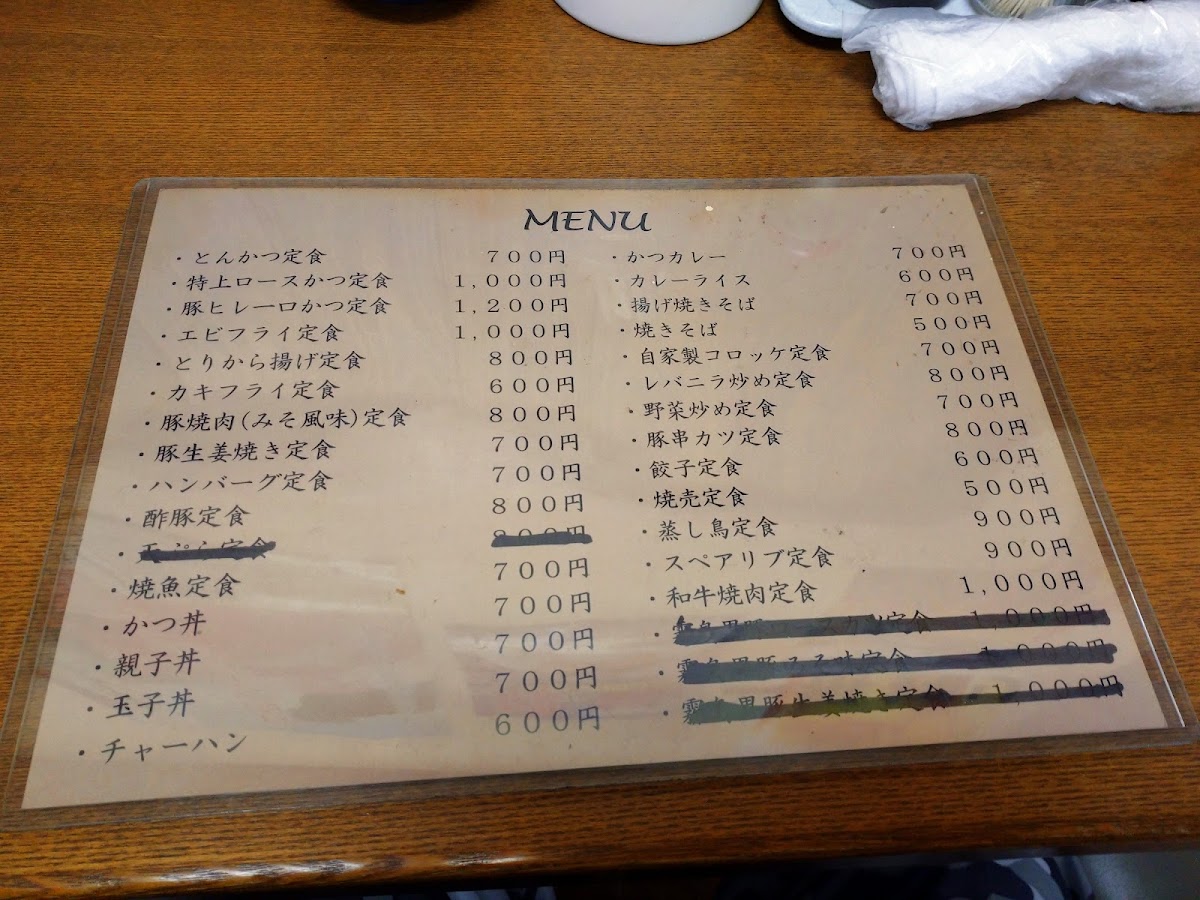 MENU
・とんかつ定食 700円
・特上ロースかつ定食 1,000円
・豚ヒレ一口かつ定食 1,200円
・エビフライ定食 1,000円
・とりから揚げ定食 800円
・カキフライ定食 600円
・豚焼肉(みそ風味)定食 800円
・豚生姜焼き定食 700円
・ハンバーグ定食 700円
・酢豚定食 800円
・天ぷら定食 800円
・焼魚定食 700円
・かつ丼 700円
・親子丼 700円
・玉子丼 700円
・チャーハン 600円
・かつカレー 700円
・カレーライス 600円
・揚げ焼きそば 700円
・焼きそば 500円
・自家製コロッケ定食 700円
・レバニラ炒め定食 800円
・野菜炒め定食 700円
・豚串カツ定食 800円
・餃子定食 600円
・焼売定食 500円
・蒸し鳥定食 900円
・スペアリブ定食 900円
・和牛焼肉定食 1,000円
・霧島黒豚 定食 1,000円
・霧島黒豚みそ味定食 1,000円
・霧島黒豚生姜焼き定食 1,000円